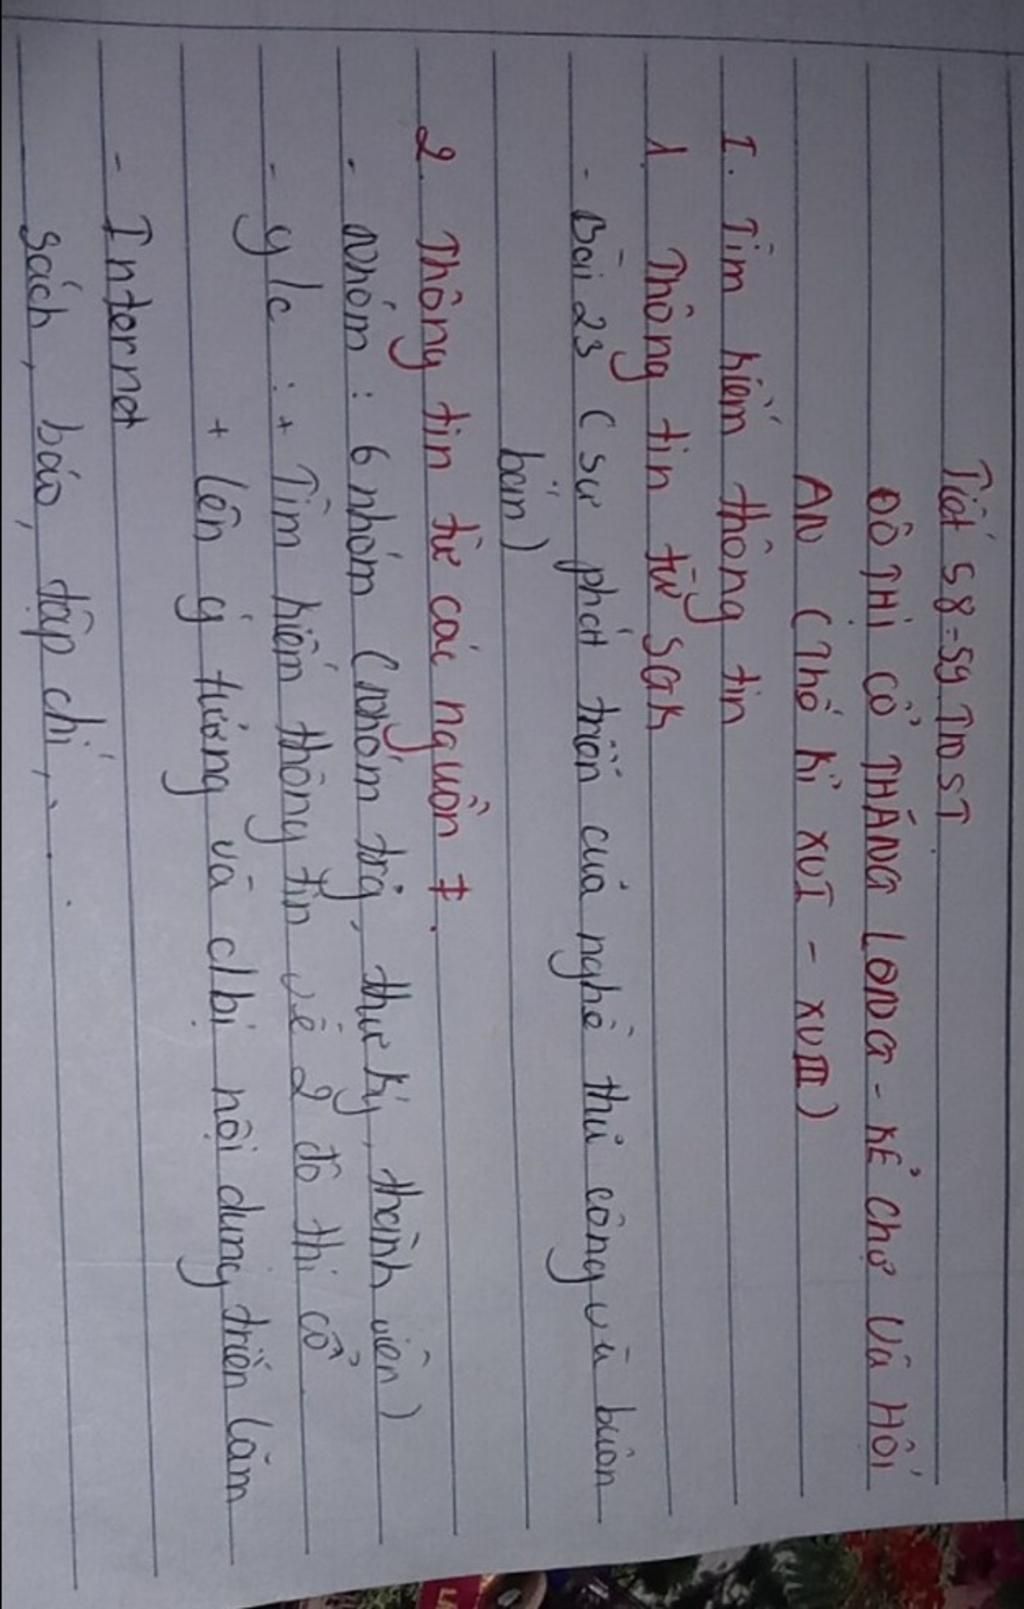 Tiết 58-59 TNST
ĐÔ THỊ CỔ THĂNG LONG - KẺ CHỢ VÀ HỘI
AN (Thế kỉ XVI - XVIII)
I. Tìm hiểm thông tin
1. Thông tin từ SGK
- Bài 23 (sự phát triển của nghề thủ công và buôn
bán)
2. Thông tin từ các nguồn ≠.
- Nhóm : 6 nhóm (nhóm trg, thư ký, thành viên)
- y/c : + Tìm kiếm thông tin về 2 đô thị cổ
+ lên ý tưởng và c/bị nội dung triển lãm
- Internet
sách, báo, tập chí, ...